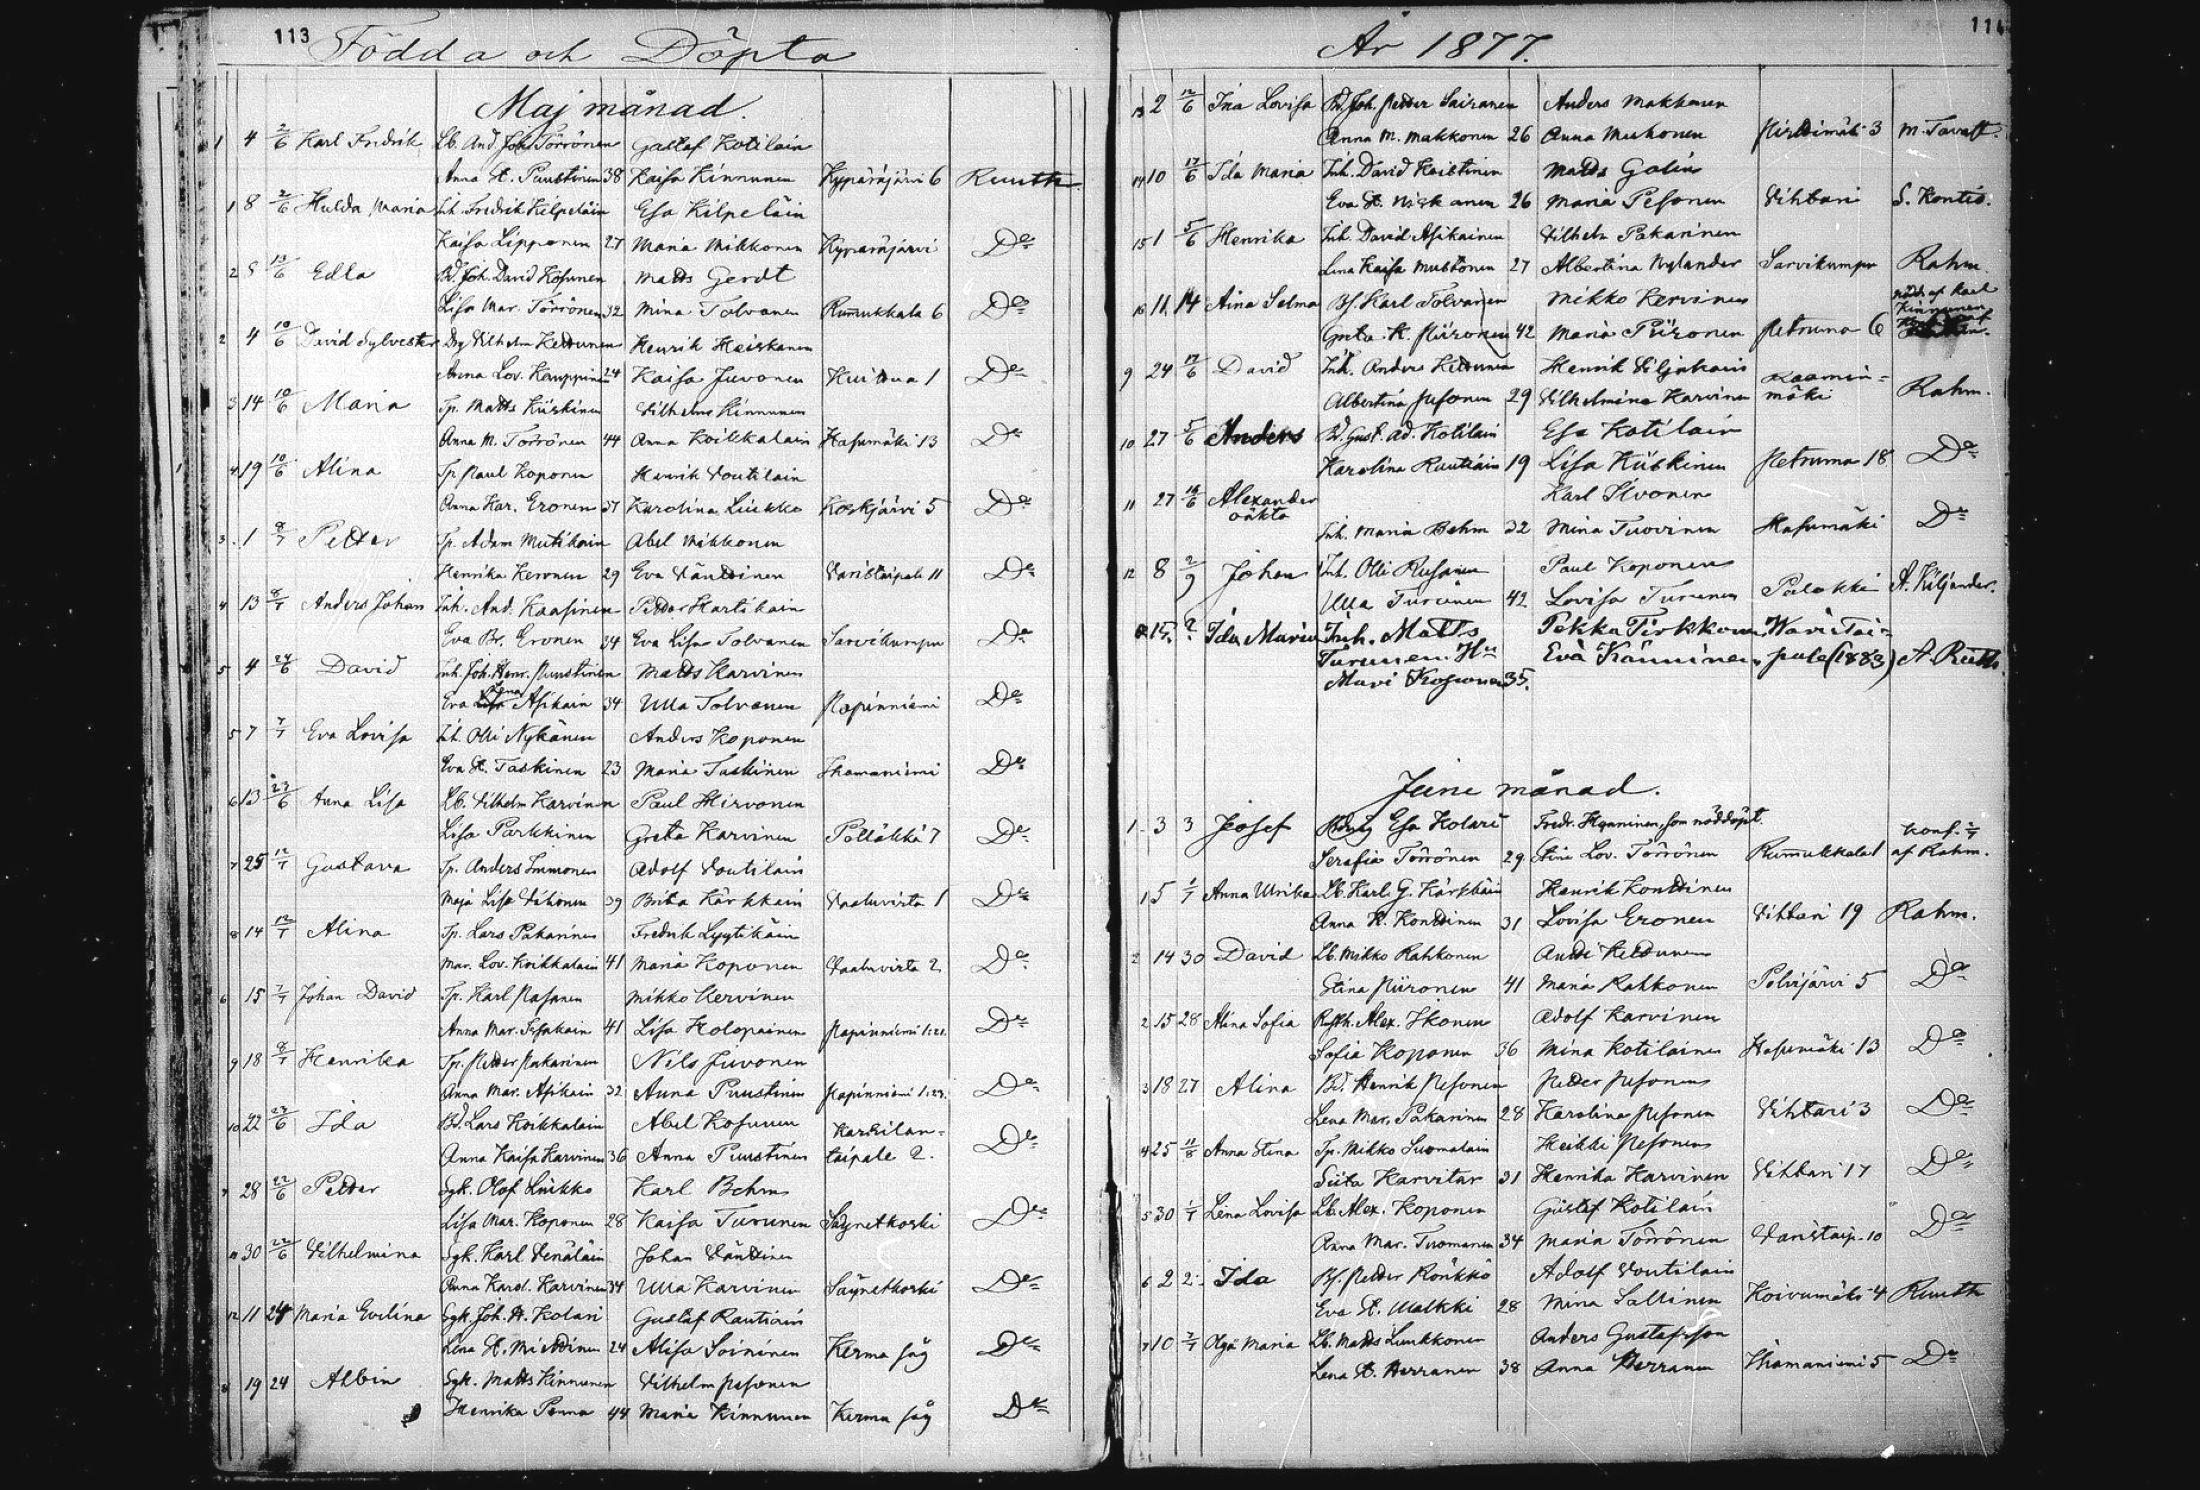 113
Födda och Döpta
Maj månad.
1 4 2/6 Karl Fredrik Lb. And. Joh. Törrönen Gustaf Kotilain
Anna St. Puustinen 38 Kaisa Kinnunen Kypäräjärvi 6 Ruuth
1 8 2/6 Hulda Maria Inh. Fredrik Kilpeläin Esa Kilpeläin
Kaisa Lipponen 27 Maria Mikkonen Kypäräjärvi Do
2 8 13/6 Edla Bd. Joh. David Kosunen Matts Gerdt
Lisa Mar. Törrönen 32 Mina Tolvanen Rumukkala 6 Do
2 4 10/6 David Sylvester Drg Vilhelm Kettunen Henrik Heiskanen
Anna Lov. Kauppinen 24 Kaisa Juvonen Kuitua 1 Do
3 14 10/6 Maria Tp. Matts Kiiskinen Vilhelm Kinnunen
Anna M. Törrönen 44 Anna Koikkalain Hasumäki 13 Do
4 19 10/6 Alina Tp. Paul Koponen Henrik Voutilain
Anna Kar. Eronen 37 Karolina Liukko Koskjärvi 5 Do
3 1 8/7 Petter Tp. Adam Mutikain Abel Mikkonen
Henrika Keronen 29 Eva Vänttinen Varistaipale 11 Do
4 13 8/7 Anders Johan Inh. And. Kaasinen Petter Hartikain
Eva Br. Eronen 34 Eva Lisa Tolvanen Sarvikumpu Do
5 4 24/6 David Inh. Joh. Henr. Puustinen Matts Karvinen
Eva Lena Asikain 34 Ulla Tolvanen Papinniemi Do
5 7 7/7 Eva Lovisa Inh. Olli Nykänen Anders Koponen
Eva St. Taskinen 23 Maria Taskinen Ihamaniemi Do
6 13 23/6 Anna Lisa Lb. Vilhelm Karvinen Paul Hirvonen
Lisa Parkkinen Greta Karvinen Pölläkkä 7 Do
7 25 12/7 Gustava Tp. Anders Immonen Adolf Voutilain
Maja Lisa Vihonen 39 Brita Kärkkäin Vaaluvirta 1 Do
8 14 12/7 Alina Tp. Lars Pakarinen Fredrik Lyytikäin
Mar. Lov. Koikkalain 41 Maria Koponen Vaaluvirta 2 Do
6 15 7/7 Johan David Tp. Karl Pasanen Mikko Kervinen
Anna Mar. Issakain 41 Lisa Holopainen Papinniemi 1:21. Do
9 18 8/7 Henrika Tp. Petter Pakarinen Nils Juvonen
Anna Mar. Asikain 32 Anna Puustinen Papinniemi 1:23. Do
10 22 23/6 Ida Bd. Lars Koikkalain Abel Kosunen Karkilan-
Anna Kaisa Karvinen 36 Anna Puustinen taipale 2. Do
7 28 22/6 Petter Sgk. Olof Liukko Karl Behm
Lisa Mar. Koponen 28 Kaisa Turunen Säynetkoski Do
11 30 22/6 Vilhelmina Sgk. Karl Venäläin Johan Vänttinen
Anna Karol. Karvinen 34 Ulla Karvinen Säynetkoski Do
12 11 24 Maria Evelina Sgk. Joh. H. Kolari Gustaf Rautiain
Lena St. Miettinen 24 Alisa Soininen Kerma såg Do
8 19 24 Albin Sgk. Matts Kinnunen Vilhelm Pesonen
Henrika Penna 44 Maria Kinnunen Kerma såg Do
114
År 1877.
13 2 12/6 Ina Lovisa Bd. Joh. Petter Sairanen Anders Makkonen
Anna M. Makkonen 26 Anna Muhonen 3 M. Tavast.
14 10 17/6 Ida Maria Inh. David Koistinen Matts Golin
Eva St. Niskanen 26 Maria Pesonen Vihtari S. Kontio.
15 1 5/6 Henrika Inh. David Asikainen Vilhelm Pakarinen
Lena Kaisa Mustonen 27 Albertina Nylander Sarvikumpu Rahm.
16 11 14 Aina Selma Bs. Karl Tolvanen Mikko Kervinen nödd. af Karl Kinnunen
Greta K. Piironen 42 Maria Piironen Petruma 6
9 24 17/6 David Inh. Anders Kettunen Henrik Viljakain Kaamin-
Albertina Pesonen 29 Vilhelmina Karvinen mäki Rahm.
10 27 5/6 Anders Bd. Gust. Ad. Kotilain Esa Kotilain
Karolina Rautiain 19 Lisa Kiiskinen Petruma 18 Do
11 27 18/6 Alexander Karl Ilvonen
oäkta Inh. Maria Behm 32 Mina Tuovinen Hasumäki Do
12 8 2/9 Johan Inh. Olli Rusanen Paul Koponen
Ulla Turunen 42 Lovisa Turunen Palokki A. Kiljander.
15. ? Ida Maria Inh. Matts Pekka Tirkkonen Waristai-
Turunen. Hu Eva Känninen pale (1883) A. Ruth.
Mari Kosonen 35.
Juni månad.
1 3 3 Josef Esa Kolari Fredr. Hynninen, som nöddöpt. konf. 2/7
Serafia Törrönen 29 Stina Lov. Törrönen Rumukkala 1 af Rahm.
1 5 1/7 Anna Ulrika Lb. Karl G. Kärkkäin Henrik Konttinen
Anna K. Konttinen 31 Lovisa Eronen Vihtari 19 Rahm.
2 14 30 David Lb. Mikko Rahkonen Antti Kettunen
Stina Piironen 41 Maria Rahkonen Polvijärvi 5 Do
2 15 28 Alina Sofia Alex. Ikonen Adolf Karvinen
Sofia Koponen 36 Mina Kotilainen Hasumäki 13 Do
3 18 27 Alina Bd. Henrik Pesonen Petter Pesonen
Lena Mar. Pakarinen 28 Karolina Pesonen Vihtari 3 Do
4 25 11/8 Anna Stina Tp. Mikko Suomalain Heikki Pesonen
Siita Karvitar 31 Henrika Karvinen Vihtari 17 Do
5 30 1/7 Lena Lovisa Lb. Alex. Koponen Gustaf Kotilain
Anna Mar. Tuomanen 34 Maria Törrönen Varistaip. 10 Do
6 2 2 Ida Bs. Petter Rönkkö Adolf Voutilain
Eva St. Malkki 28 Mina Sallinen Koivumäki 4 Ruuth
7 10 2/7 Olga Maria Lb. Matts Luukkonen Anders Gustafsson
Lena St. Herranen 38 Anna Herranen Ihamaniemi 5 Do